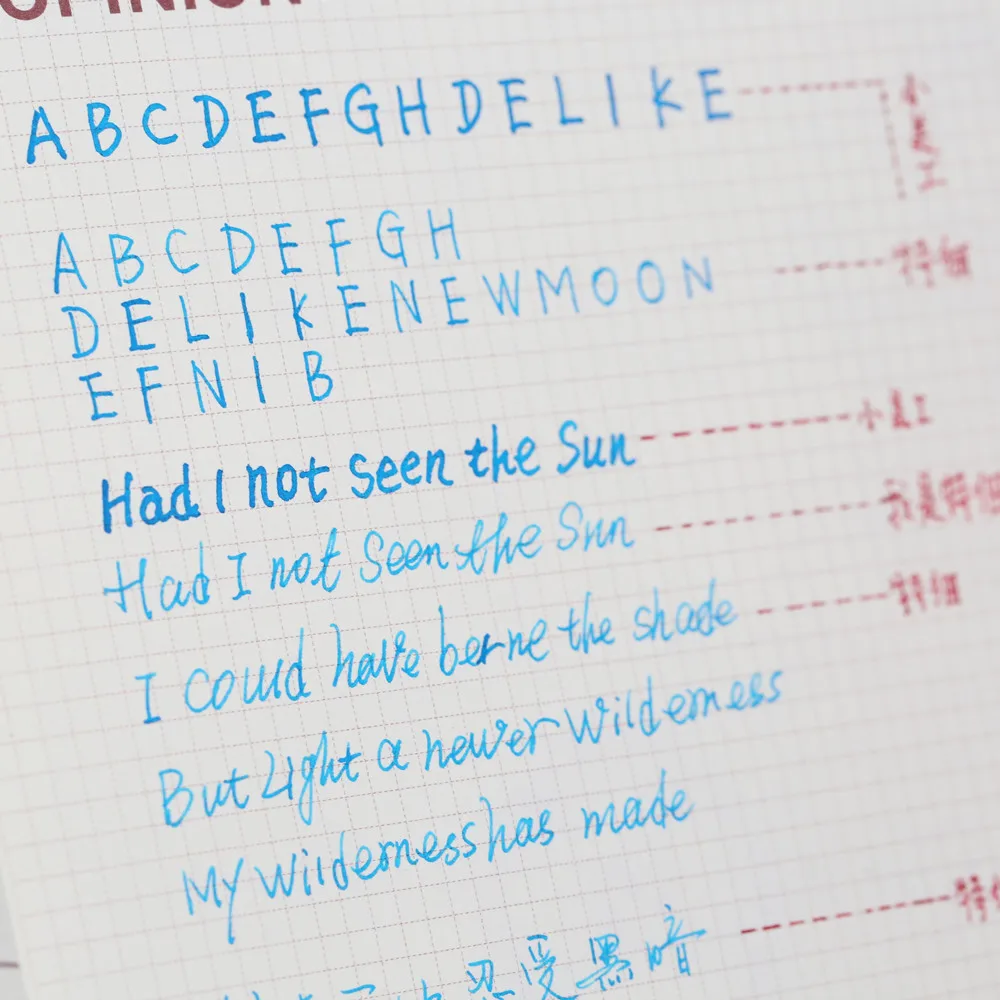 OPINION
ABCDEFGHDELIKE 小美工
ABCDEFGH
DELIKENEWMOON 特细
EFNIB
Had I not seen the Sun 小美工
Had I not Seen the Sun 我是特细
I could have berne the shade 特细
But Light a newer Wilderness
My Wilderness has made
忍受黑暗 特